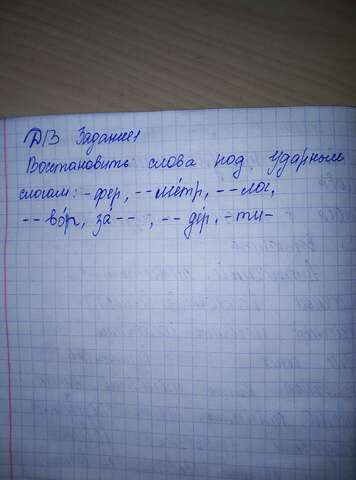 Д/З Задание 1
Восстановить слова под ударным
слогам: - фер, - - ме́тр, - - лог,
- - во́р, за́ - - , - - дір, - ти -